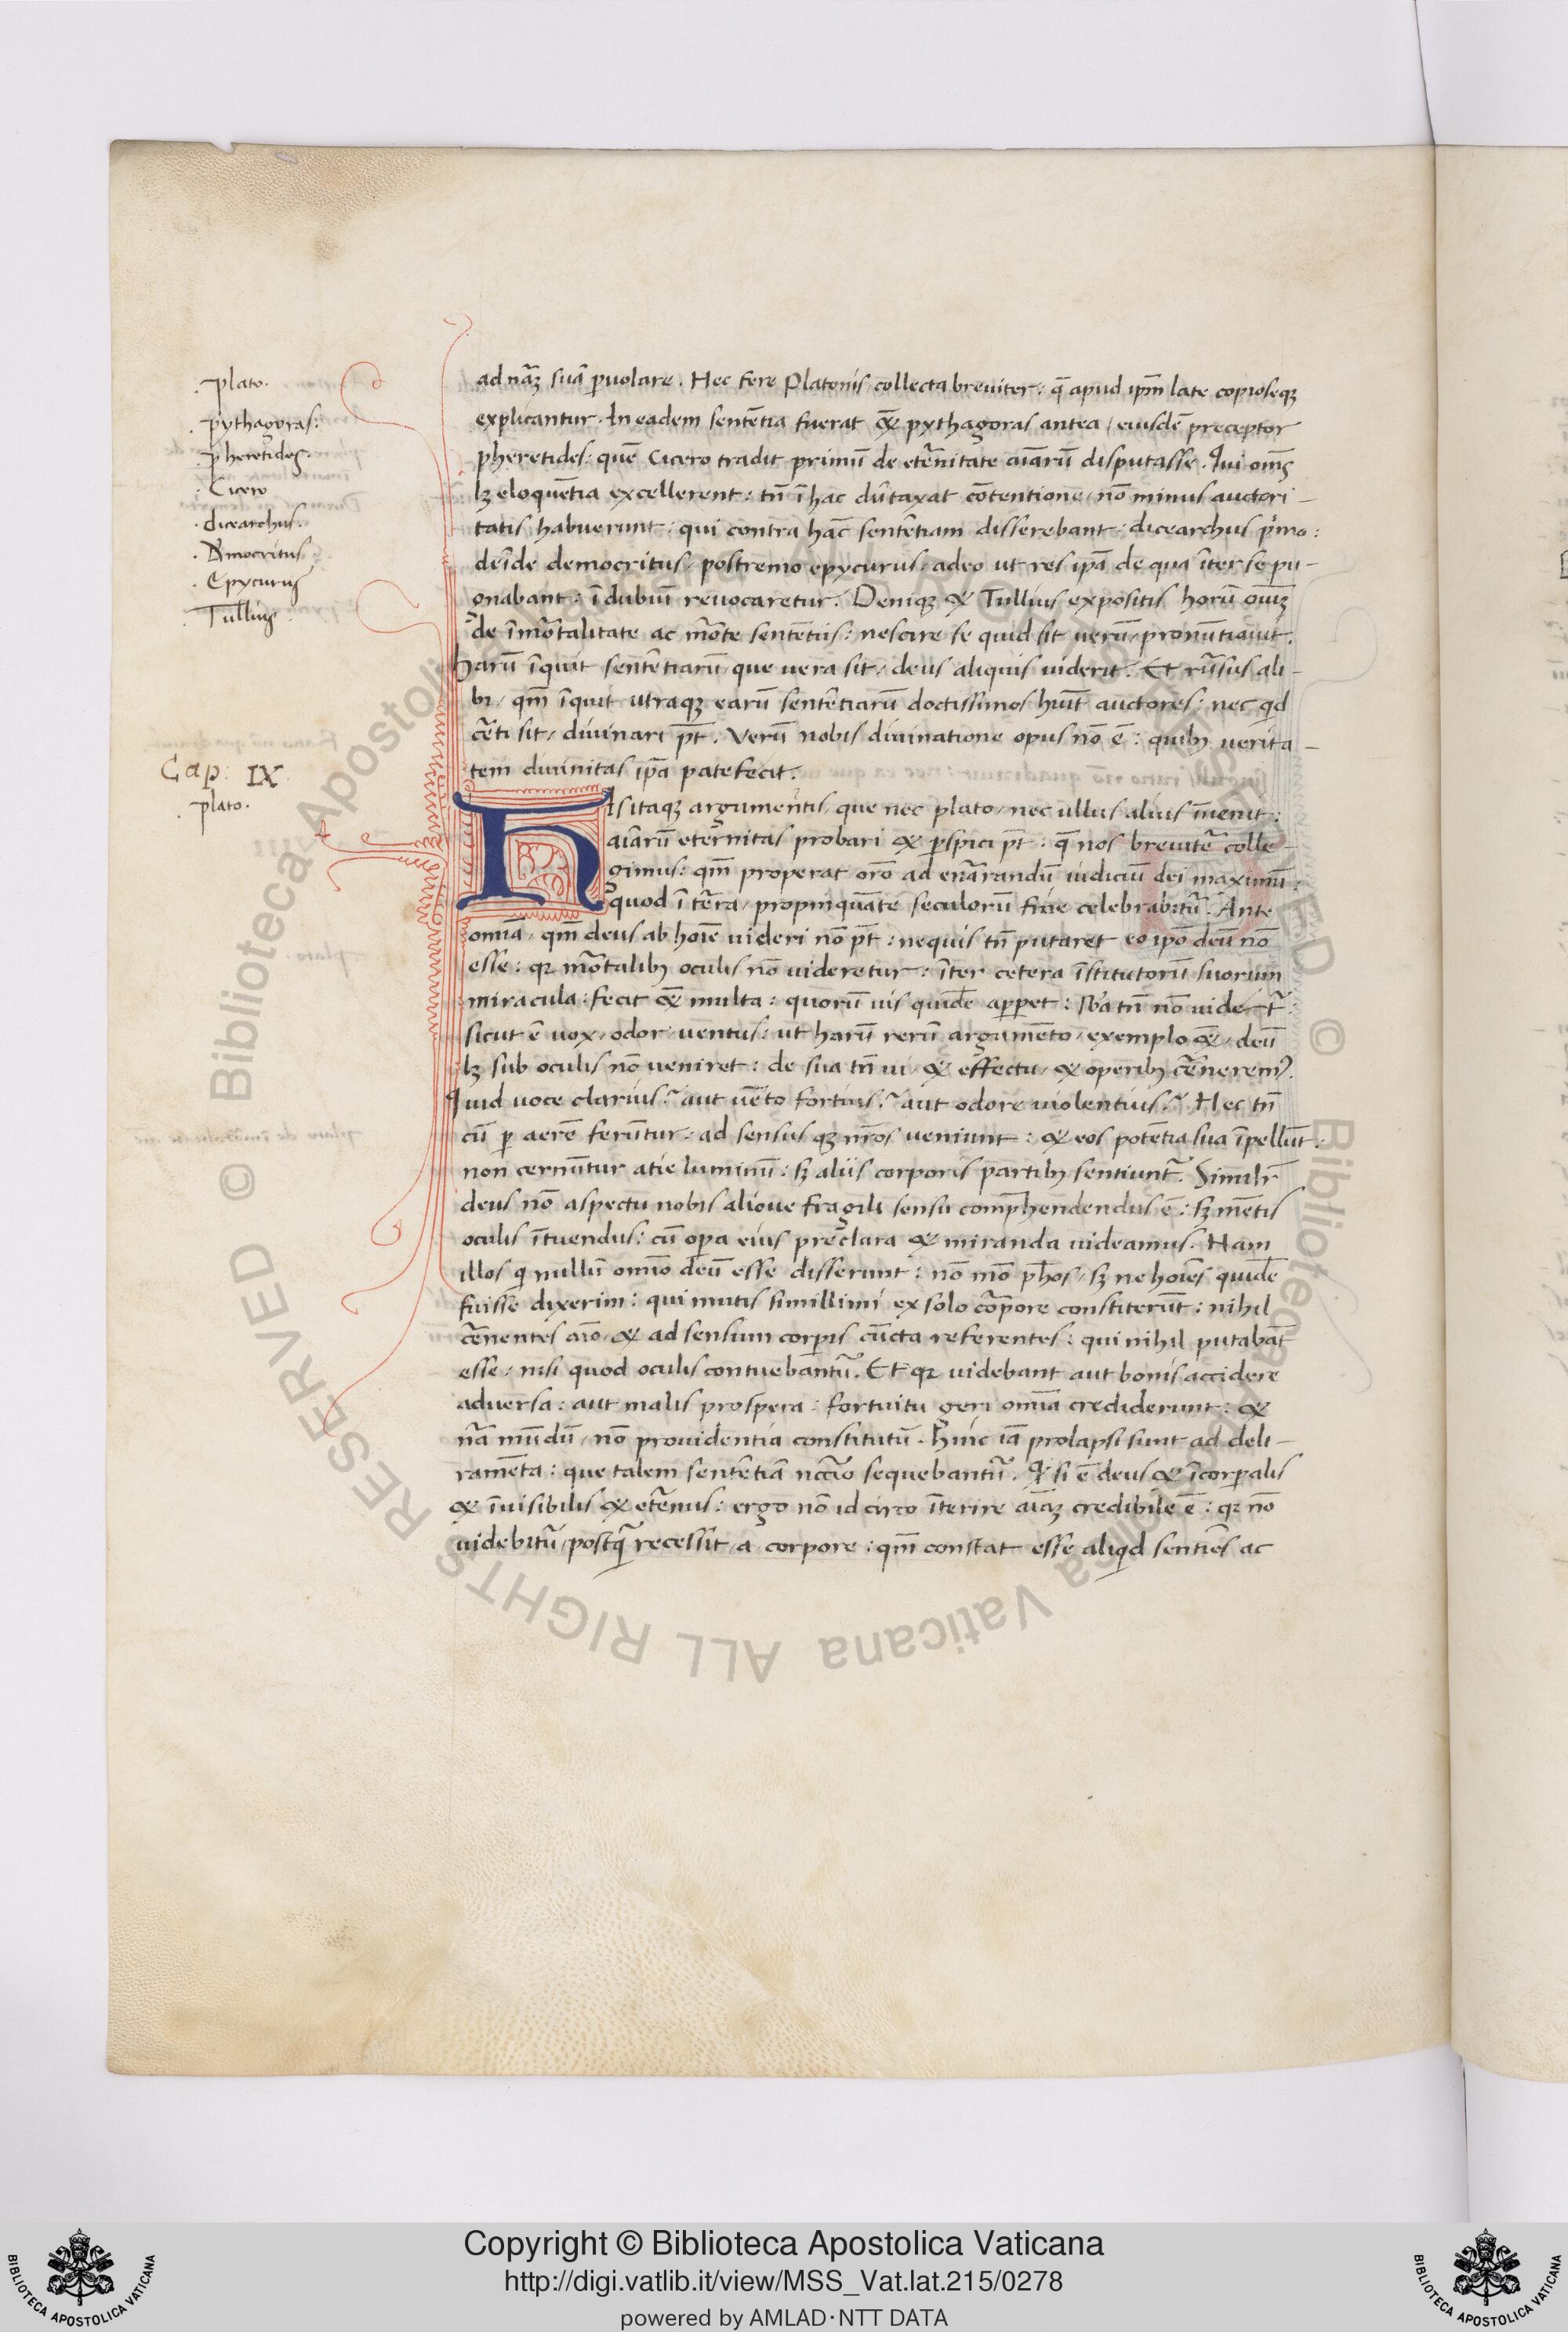 plato.
pythagoras:
pheretides.
Cicero
dicearchus.
Democritus
Epycurus
Tullius
ad nãz suã ꝑuolare. Hec fere Platonis collecta breviter: q̃ apud ip̃m late copioseqꝫ
explicantur. In eadem sentẽtia fuerat &̃ pythagoras antea / eiusdẽ preceptor
pheretides: quẽ Cicero tradit primũ de et̃nitate aiarũ disputasse. Qui om̃s
lꝫ eloquẽtia excellerent: tñ ĩ hac dũtaxat cõtentione / nõ minus auctori-
tatis habuerunt / qui contra hãc sentẽtiam disserebant: dicearchus p'mo:
deĩde democritus / postremo epycurus / adeo ut res ip̃a de qua ĩter se pu-
gnabant: ĩ dubiũ revocaretur. Deniqꝫ & Tullius expositis horũ om̃iꝫ
de ĩmõtalitate ac mõte sentẽtiis: nescire se quid sit verũ / pronũtiavit.
Harũ ĩquit sentẽtiarũ / que vera sit / deus aliquis viderit. Et rũsus ali-
bi / qm̃ ĩquit utraqꝫ earũ sentẽtiarũ doctissimos huit̃ auctores: nec qd
c̃ti sit / divinari pt̃. Verũ nobis divinatione opus nõ ẽ: quibꝫ verita-
tem divinitas ip̃a patefecit.
Cap: IX
plato.
HIs itaqꝫ argumẽtis / que nec plato / nec ullus alius ĩvenit:
aiarũ et̃nitas probari & ꝑspici pt̃: q̃ nos brevit̃ colle-
gimus: qm̃ properat or̃o ad enãrandũ iudiciũ dei maximũ:
quod ĩ t̃ra / propinquãte seculorũ fine celebrabit̃. Ante
om̃ia / qm̃ deus ab hoĩe videri nõ pt̃: nequis tñ putaret eo ip̃o deũ nõ
esse: qꝛ mõtalibꝫ oculis nõ videretur: ĩter cetera ĩstitutorũ suorum
miracula: fecit &̃ multa: quorũ vis quidẽ apꝑet: sb̃a tñ nõ videt̃:
sicut ẽ vox / odor / ventus: ut harũ rerũ argumẽto / exemplo &̃ / deũ
lꝫ sub oculis nõ veniret: de sua tñ vi / & effectu / & operibꝫ c̃neremꝰ.
Quid voce clarius? aut vẽto fortius? aut odore violentius? Hec tñ
cũ ꝑ aerẽ ferũtur: ad sensus qꝫ nr̃os veniunt: & eos potẽtia sua ĩpellũt:
non cernũtur atie luminũ: sꝫ aliis corporis partibꝫ sentiunt̃. Similr̃
deus nõ aspectu nobis aliove fragili sensu comp̃hendendus ẽ: sꝫ mẽtis
oculis ĩtuendus: cũ oꝑa eius preclara & miranda videamus. Nam
illos q' nullũ om̃io deũ esse disserunt: nõ mõ ph̃os / sꝫ ne hoĩes quidẽ
fuisse dixerim: qui mutis simillimi ex solo cõpore constiterũt: nihil
c̃nentes aĩo / & ad sensum corꝑis cũcta referentes: qui nihil putabãt
esse / nisi quod oculis contuebant̃. Et qꝛ videbant aut bonis accidere
adversa: aut malis prospera: fortuitu geri om̃ia crediderunt: &
nã mũdũ / nõ providentia constitutũ. Hinc iã prolapsi sunt ad deli-
ramẽta: que talem sentẽtiã nccrio sequebant̃. Q' si ẽ deus & ĩcorꝑalis
& ĩvisibilis & et̃nus: ergo nõ idcirco ĩterire aĩaꝫ credibile ẽ: qꝛ nõ
videbit̃ / postq̃ recessit / a corpore: qm̃ constat esse aliqd sentiẽs ac
Copyright © Biblioteca Apostolica Vaticana
http://digi.vatlib.it/view/MSS_Vat.lat.215/0278
powered by AMLAD·NTT DATA
BIBLIOTECA APOSTOLICA VATICANA
BIBLIOTECA APOSTOLICA VATICANA
© Biblioteca Apostolica Vaticana ALL RIGHTS RESERVED